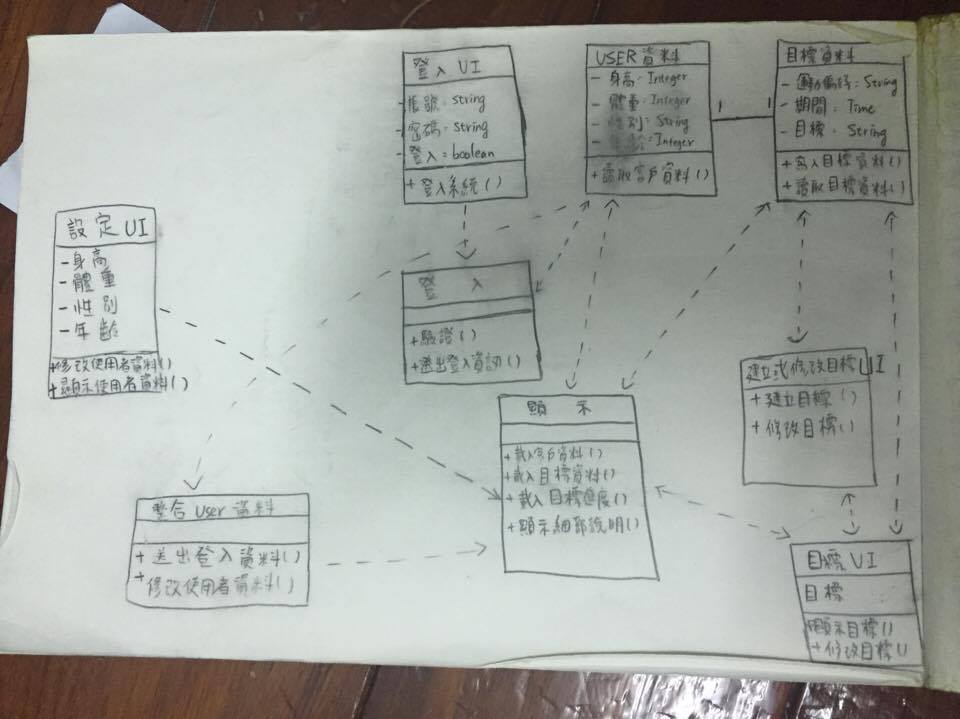 登入 UI
- 帳號：string
- 密碼：string
- 登入：boolean
+ 登入系統()
USER 資料
- 身高：Integer
- 體重：Integer
- 性別：String
- 年齡：Integer
+ 讀取客戶資料()
1
1
目標資料
- 運動編號：String
- 期間：Time
- 目標：String
+ 寫入目標資料()
+ 讀取目標資料()
設定 UI
- 身高
- 體重
- 性別
- 年齡
+修改使用者資料()
+顯示使用者資料()
登入
+ 驗證()
+ 送出登入資訊()
顯示
+載入客戶資料()
+載入目標資料()
+ 載入目標進度()
+ 顯示細節說明()
建立或修改目標UI
+ 建立目標()
+ 修改目標()
整合 User 資料
+ 送出登入資料()
+ 修改使用者資料()
目標 UI
目標
+顯示目標()
+修改目標()